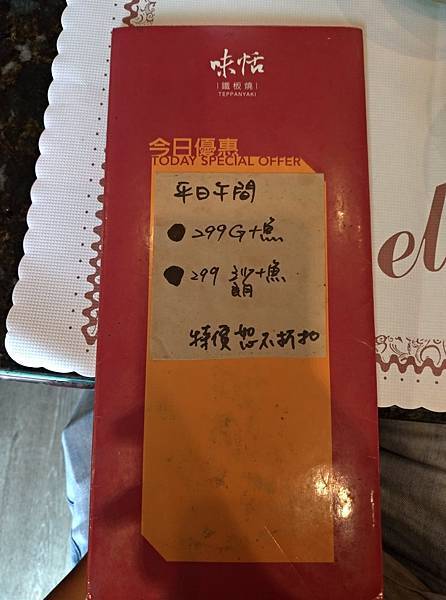 味恬
鐵板燒
TEPPANYAKI
今日優惠
TODAY SPECIAL OFFER
平日午間
●299G+魚
●299 沙朗+魚
特價恕不折扣
el